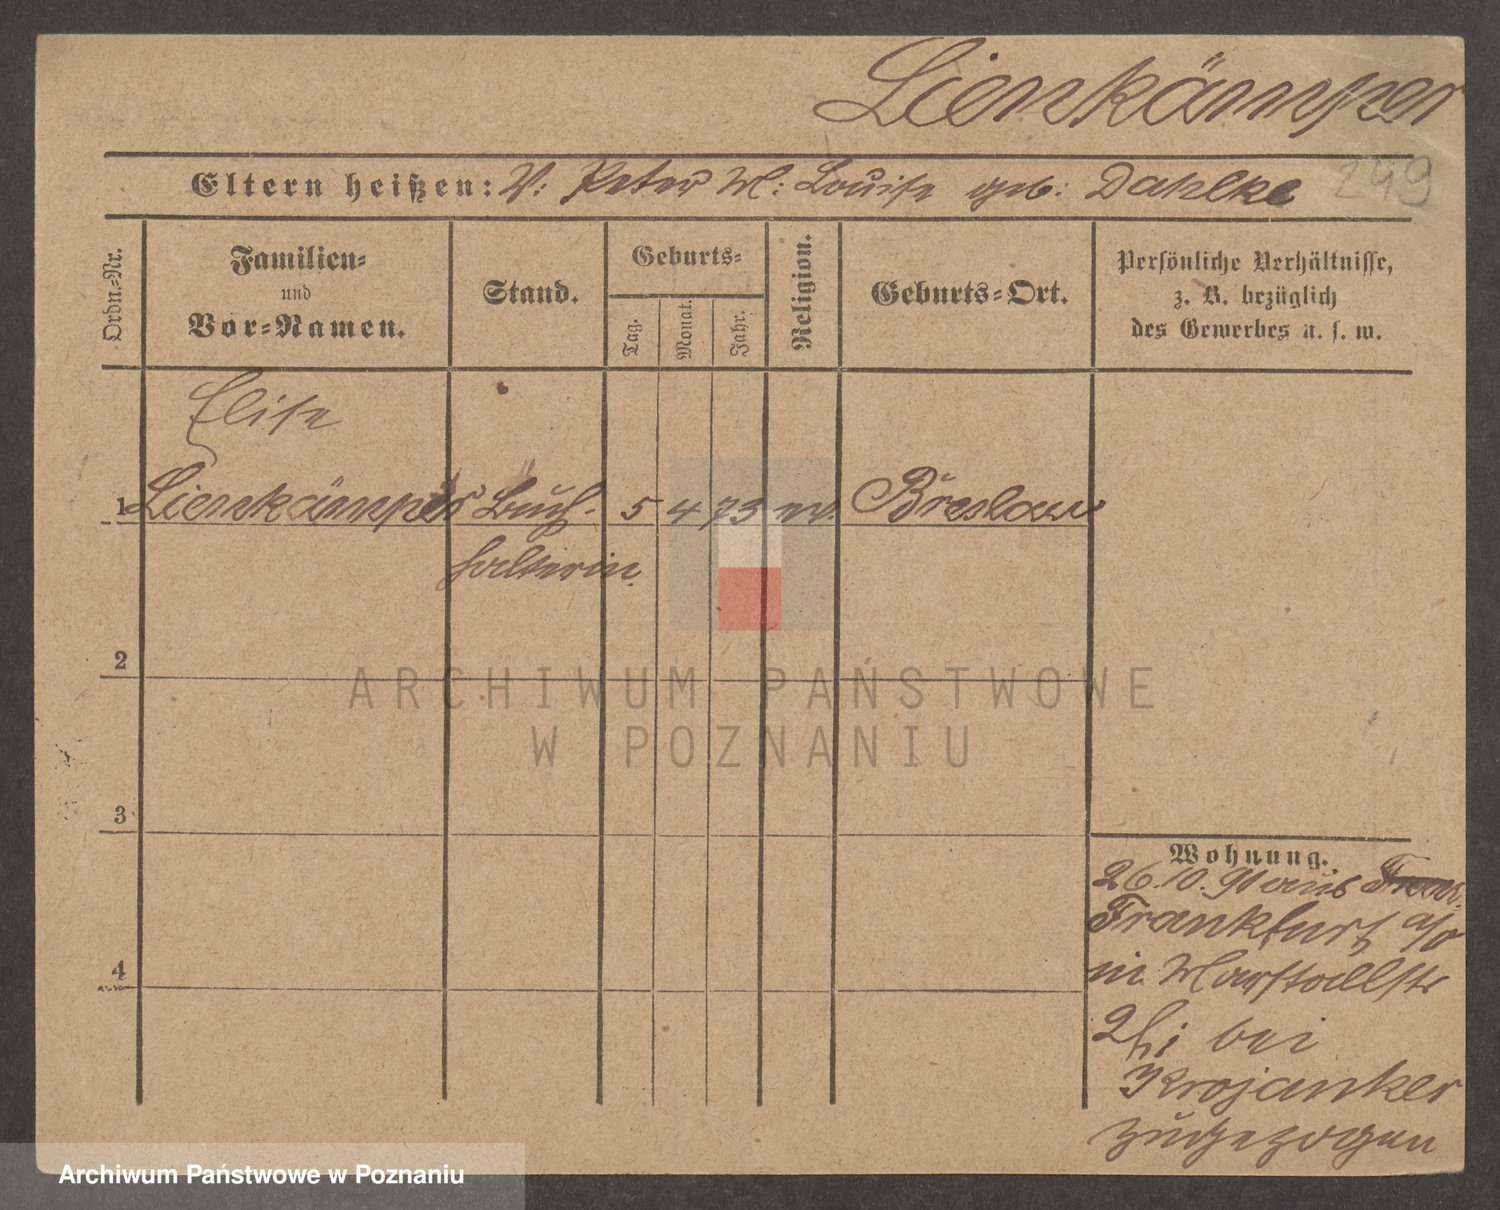 Lienkämper
Eltern heißen: V: Peter M: Louise geb: Dahlke 249
Ordn.-Nr.
Familien-
und
Vor-Namen.
Stand.
Geburts-
Tag.
Monat.
Jahr.
Religion.
Geburts-Ort.
Persönliche Verhältnisse,
z. B. bezüglich
des Gewerbes u. s. w.
Elise
1 Lienkämper Buch- 5 4 73 ev. Breslau
halterin
2
ARCHIWUM PAŃSTWOWE
W POZNANIU
3
Wohnung.
26.10.91 aus
Frankfurt a/O
in Marstallstr
2 bei
4
Krojanker
zugezogen
Archiwum Państwowe w Poznaniu